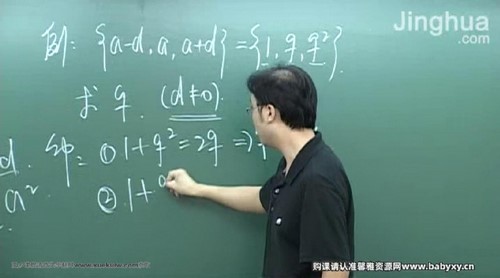 Jinghua
.com
例: {a-d, a, a+d} = {1, q, q²}.
求 q. (d≠0).
d. 解: ① 1+q²=2q ⇒
a². ② 1+
购课请认准馨雅资源网www.babyxy.cn